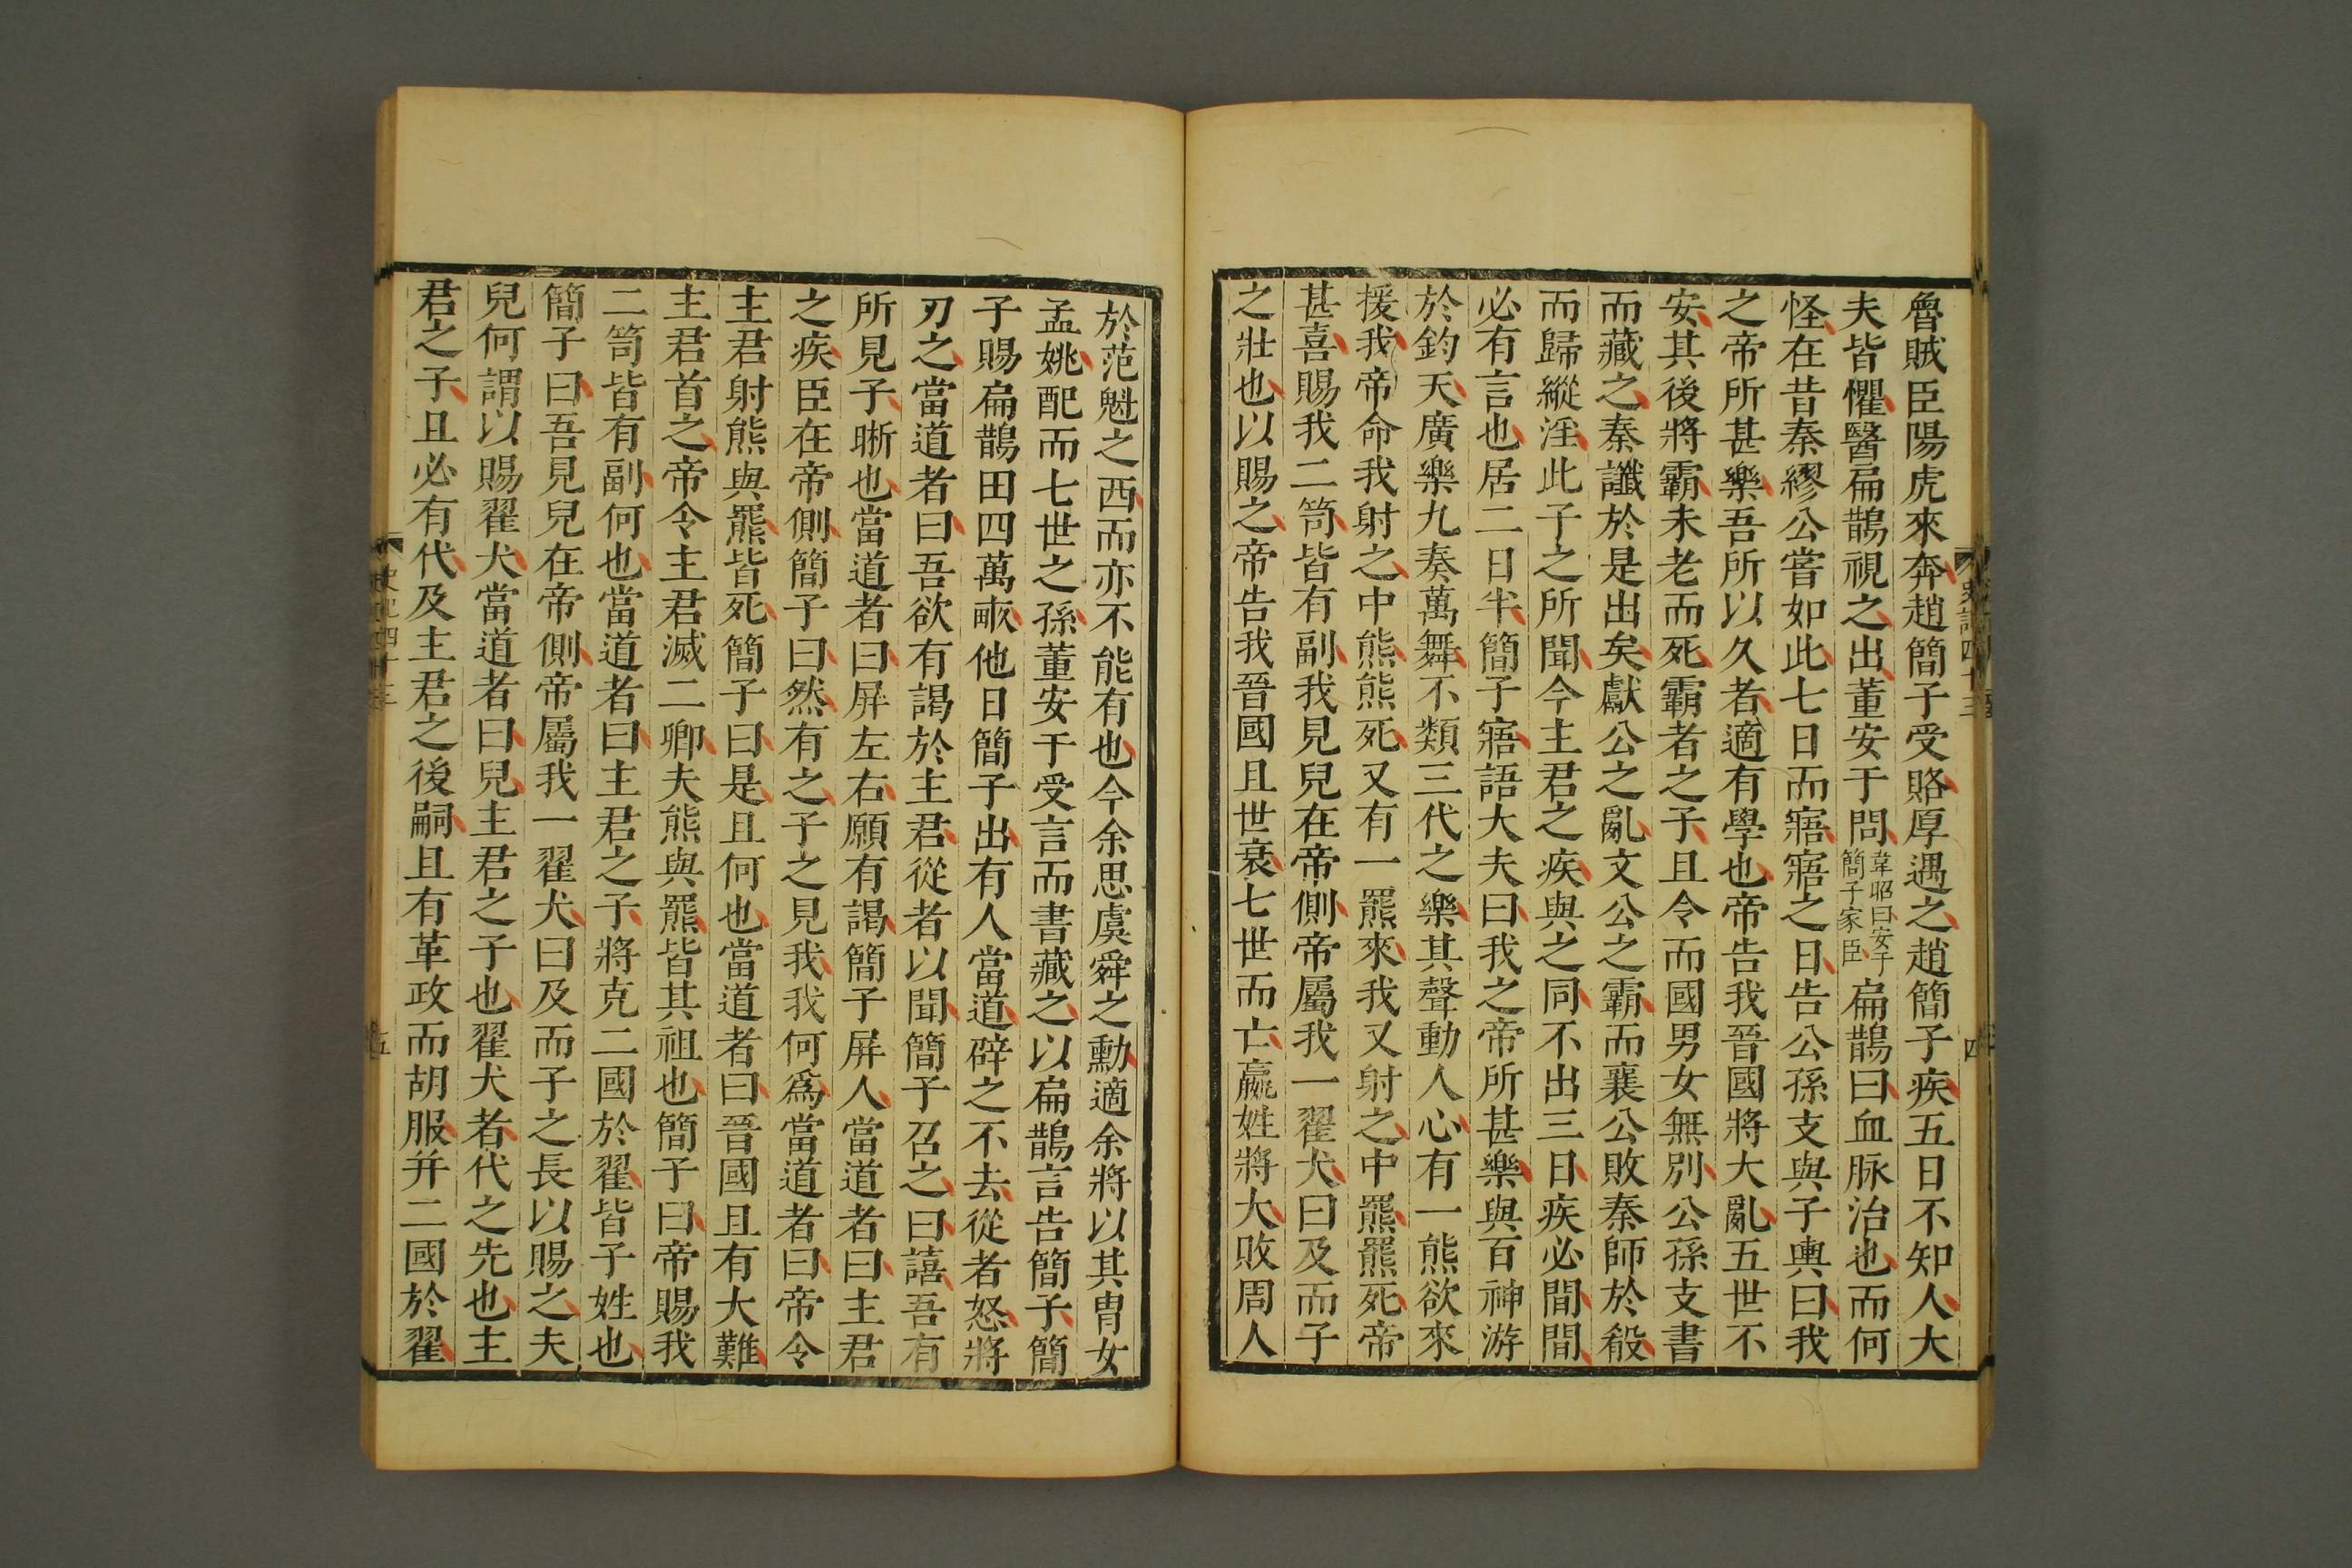 魯賊臣陽虎來奔趙簡子受賂厚遇之趙簡子疾五日不知人大
夫皆懼醫扁鵲視之出董安于問韋昭曰安于簡子家臣扁鵲曰血脉治也而何
怪在昔秦繆公嘗如此七日而寤寤之日告公孫支與子輿曰我
之帝所甚樂吾所以久者適有學也帝告我晉國將大亂五世不
安其後將霸未老而死霸者之子且令而國男女無別公孫支書
而藏之秦讖於是出矣獻公之亂文公之霸而襄公敗秦師於殽
而歸縱淫此子之所聞今主君之疾與之同不出三日疾必間間
必有言也居二日半簡子寤語大夫曰我之帝所甚樂與百神游
於鈞天廣樂九奏萬舞不類三代之樂其聲動人心有一熊欲來
援我帝命我射之中熊熊死又有一羆來我又射之中羆羆死帝
甚喜賜我二笥皆有副我見兒在帝側帝屬我一翟犬曰及而子
之壯也以賜之帝告我晉國且世衰七世而亡嬴姓將大敗周人
於范魁之西而亦不能有也今余思虞舜之勳適余將以其胄女
孟姚配而七世之孫董安于受言而書藏之以扁鵲言告簡子簡
子賜扁鵲田四萬畝他日簡子出有人當道辟之不去從者怒將
刃之當道者曰吾欲有謁於主君從者以聞簡子召之曰譆吾有
所見子晣也當道者曰屏左右願有謁簡子屏人當道者曰主君
之疾臣在帝側簡子曰然有之子之見我我何爲當道者曰帝令
主君射熊與羆皆死簡子曰是且何也當道者曰晉國且有大難
主君首之帝令主君滅二卿夫熊與羆皆其祖也簡子曰帝賜我
二笥皆有副何也當道者曰主君之子將克二國於翟皆子姓也
簡子曰吾見兒在帝側帝屬我一翟犬曰及而子之長以賜之夫
兒何謂以賜翟犬當道者曰兒主君之子也翟犬者代之先也主
君之子且必有代及主君之後嗣且有革政而胡服并二國於翟
史記四十三
四
五